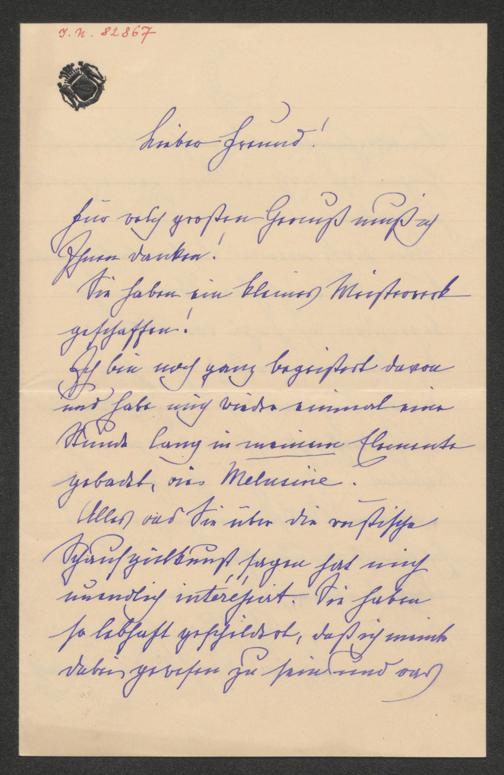 I. N. 82867
Lieber Freund!
Für welch großen Genuß muß ich
Ihnen danken!
Sie haben ein kleines Meisterwerk
geschaffen!
Ich bin noch ganz begeistert davon
und habe mich wieder einmal eine
Stunde lang in meinem Elemente
gebadet, wie Melusine.
Alles was Sie über die russische
Schauspielkunst sagen hat mich
unendlich interessirt. Sie haben
so lebhaft geschildert, daß ich meinte
dabei gewesen zu sein und was